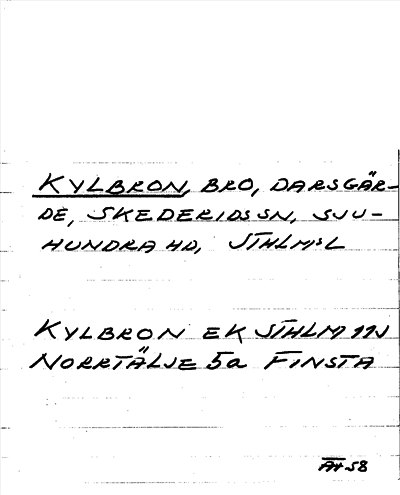 KYLBRON, BRO, DARSGÄR-
DE, SKEDERIDS SN, SJU-
HUNDRA HD, STHLMS L
KYLBRON EK STHLM 11N
NORRTÄLJE 5a FINSTA
AH 58